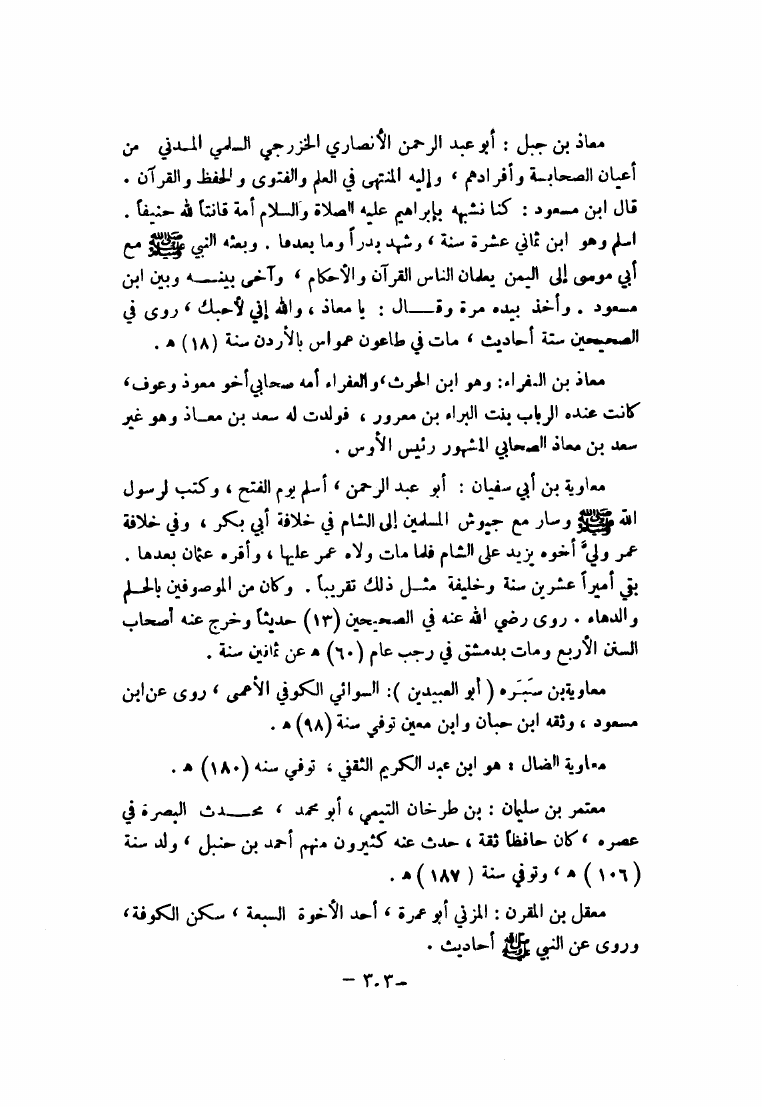 معاذ بن جبل : أبو عبد الرحمن الأنصاري الخزرجي السلمي المدني من
أعيان الصحابة وأفرادهم ، وإليه المنتهى في العلم والفتوى والحفظ والقرآن .
قال ابن مسعود : كنا نشبهه بإبراهيم عليه الصلاة والسلام أمة قانتاً لله حنيفاً .
اسلم وهو ابن ثماني عشرة سنة ، وشهد بدراً وما بعدها . وبعثه النبي ﷺ مع
أبي موسى إلى اليمن يعلمان الناس القرآن والأحكام ، وآخى بينه وبين ابن
مسعود . وأخذ بيده مرة وقال : يا معاذ ، والله إني لأحبك ، روى في
الصحيحين ستة أحاديث ، مات في طاعون عمواس بالأردن سنة (١٨) ه .
معاذ بن العفراء: وهو ابن الحرث، والعفراء أمه صحابي أخو معوذ وعوف،
كانت عنده الرباب بنت البراء بن معرور ، فولدت له سعد بن معاذ وهو غير
سعد بن معاذ الصحابي المشهور رئيس الأوس .
معاوية بن أبي سفيان : أبو عبد الرحمن ، أسلم يوم الفتح ، وكتب لرسول
الله ﷺ وسار مع جيوش المسلمين إلى الشام في خلافة أبي بكر ، وفي خلافة
عمر وليَّ أخوه يزيد على الشام فلما مات ولاه عمر عليها ، وأقره عثمان بعدها .
بقي أميراً عشرين سنة وخليفة مثل ذلك تقريباً . وكان من الموصوفين بالحلم
والدهاء . روى رضي الله عنه في الصحيحين (١٣) حديثاً وخرج عنه أصحاب
السنن الأربع ومات بدمشق في رجب عام (٦٠) ه عن ثمانين سنة .
معاوية بن سَبَره ( أبو العبيدين ): السوائي الكوفي الأعمى ، روى عن ابن
مسعود ، وثقه ابن حبان وابن معين توفي سنة (٩٨) ه .
معاوية الضال : هو ابن عبد الكريم الثقفي ، توفي سنه (١٨٠) ه .
معتمر بن سليمان : بن طرخان التيمي ، أبو محمد ، محدث البصرة في
عصره ، كان حافظاً ثقة ، حدث عنه كثيرون منهم أحمد بن حنبل ، ولد سنة
( ١٠٦ ) ه ، وتوفي سنة ( ١٨٧ ) ه .
معقل بن المقرن : المزني أبو عمرة ، أحد الأخوة السبعة ، سكن الكوفة ،
وروى عن النبي ﷺ أحاديث .
– ٣٠٣ –